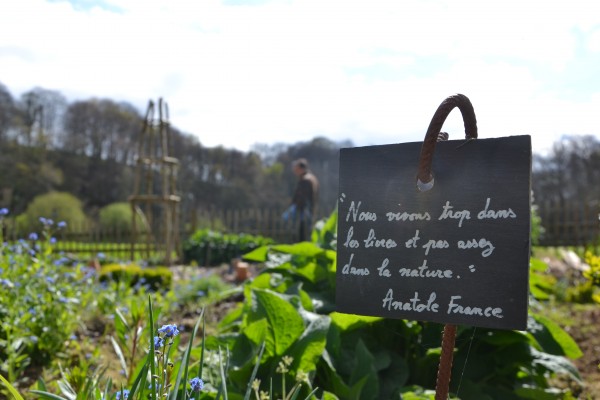 "Nous vivons trop dans
les livres et pas assez
dans la nature."
Anatole France